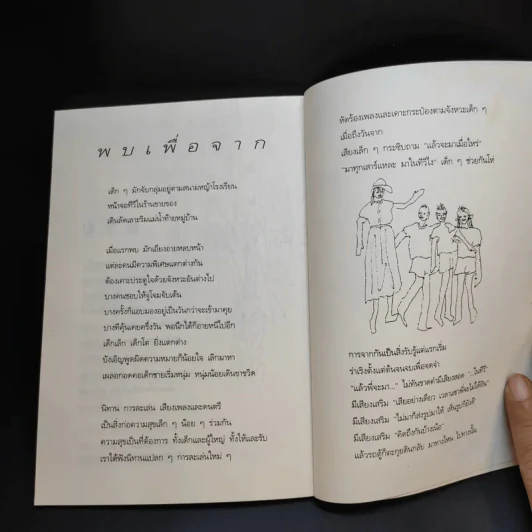 พบเพื่อจาก
เด็ก ๆ มักจับกลุ่มอยู่ตามสนามหญ้าโรงเรียน
หน้าจอทีวีในร้านขายของ
เดินลัดเลาะริมแม่น้ำท้ายหมู่บ้าน
เมื่อแรกพบ มักเอียงอายหลบหน้า
แต่ละคนมีความพิเศษแตกต่างกัน
ต้องเคาะประตูใจด้วยจังหวะอันต่างไป
บางคนชอบให้จู่โจมจับเต้น
บางครั้งก็แอบมองอยู่เป็นวันกว่าจะเข้ามาคุย
บางทีคุ้นเคยครึ่งวัน พอนึกได้ก็อายหนีไปอีก
เด็กเล็ก เด็กโต ยิ่งแตกต่าง
บังเอิญพูดผิดความหมายก็น้อยใจ เลิกมาหา
เผลอกอดคอเด็กชายเริ่มหนุ่ม หนุ่มน้อยเดินขาขวิด
นิทาน การละเล่น เสียงเพลงและดนตรี
เป็นสิ่งก่อความสุขเล็ก ๆ น้อย ๆ ร่วมกัน
ความสุขเป็นที่ต้องการ ทั้งเด็กและผู้ใหญ่ ทั้งให้และรับ
เราได้ฟังนิทานแปลก ๆ การละเล่นใหม่ ๆ
หัดร้องเพลงและเคาะกระป๋องตามจังหวะเด็ก ๆ
เมื่อถึงวันจาก
เสียงเล็ก ๆ กระซิบถาม "แล้วจะมาเมื่อไหร่"
"มาทุกเสาร์แหละ มาในทีวีไง" เด็ก ๆ ช่วยกันโห่
การจากกันเป็นสิ่งรับรู้แต่แรกเริ่ม
ร่าเริงตั้งแต่ต้นจนจบเพื่อจดจำ
"แล้วพี่จะมา..." ไม่ทันขาดคำมีเสียงสอด "...ในทีวี"
มีเสียงเสริม "เสียอย่างเดียว
มีเสียงเสริม "ไม่มาก็ส่งรูปมาให้
มีเสียงเสริม "คิดถึงกันบ้างเน้อ"
แล้วรถตู้ก็ตะกุยดินกลับ มาทางไหน ไปทางนั้น